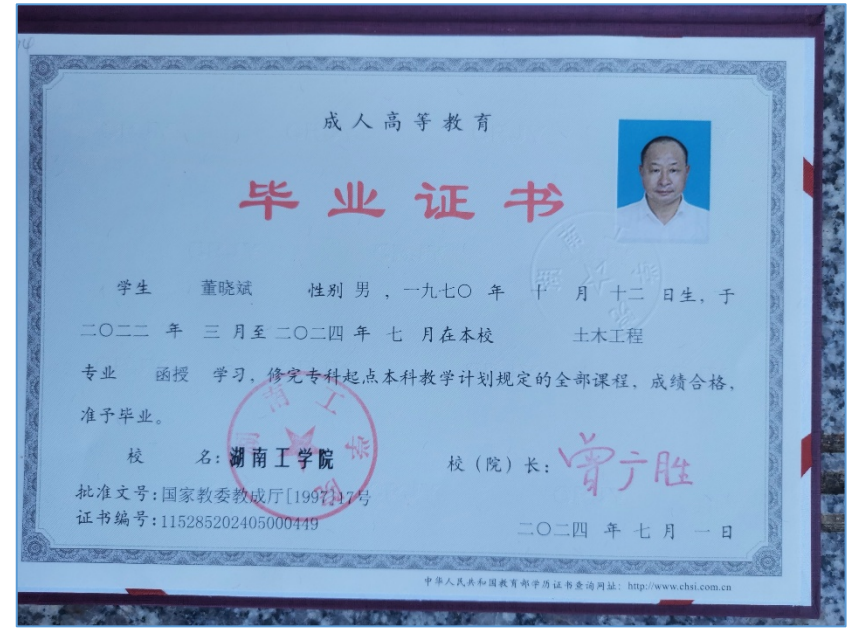 成人高等教育
毕业证书
学生 董晓斌 性别 男 ，一九七〇 年 十 月 十二 日生，于
二〇二二 年 三 月至 二〇二四 年 七 月在本校 土木工程
专业 函授 学习，修完专科起点本科教学计划规定的全部课程，成绩合格，
准予毕业。
校 名：湖南工学院 校（院）长：曾广胜
湖南工学院
批准文号：国家教委教成厅[1997]17号
证书编号：115285202405000449
二〇二四 年 七 月 一 日
中华人民共和国教育部学历证书查询网址：http://www.chsi.com.cn